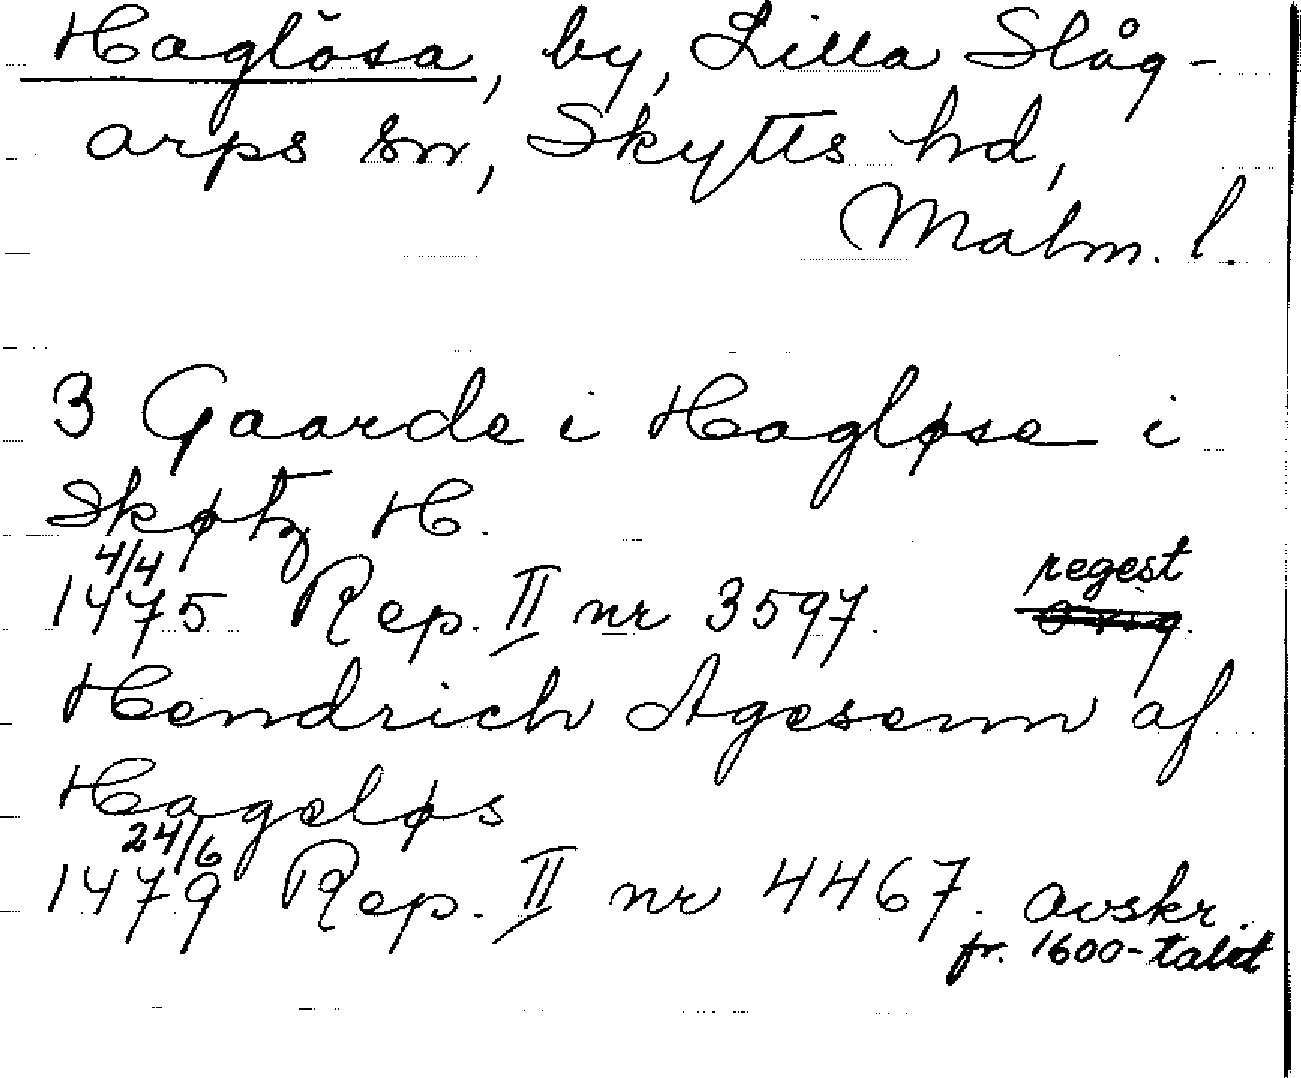 Haglösa, by, Lilla Slåg-
arps sn, Skytts hd,
Malm. l.
3 Gaarde i Hagløse i
Skøtz H.
4/4
1475 Rep. II nr 3597. regest
Hendrich Agesenn af
Hageløs
24/6
1479 Rep. II nr 4467. avskr.
fr. 1600-talet